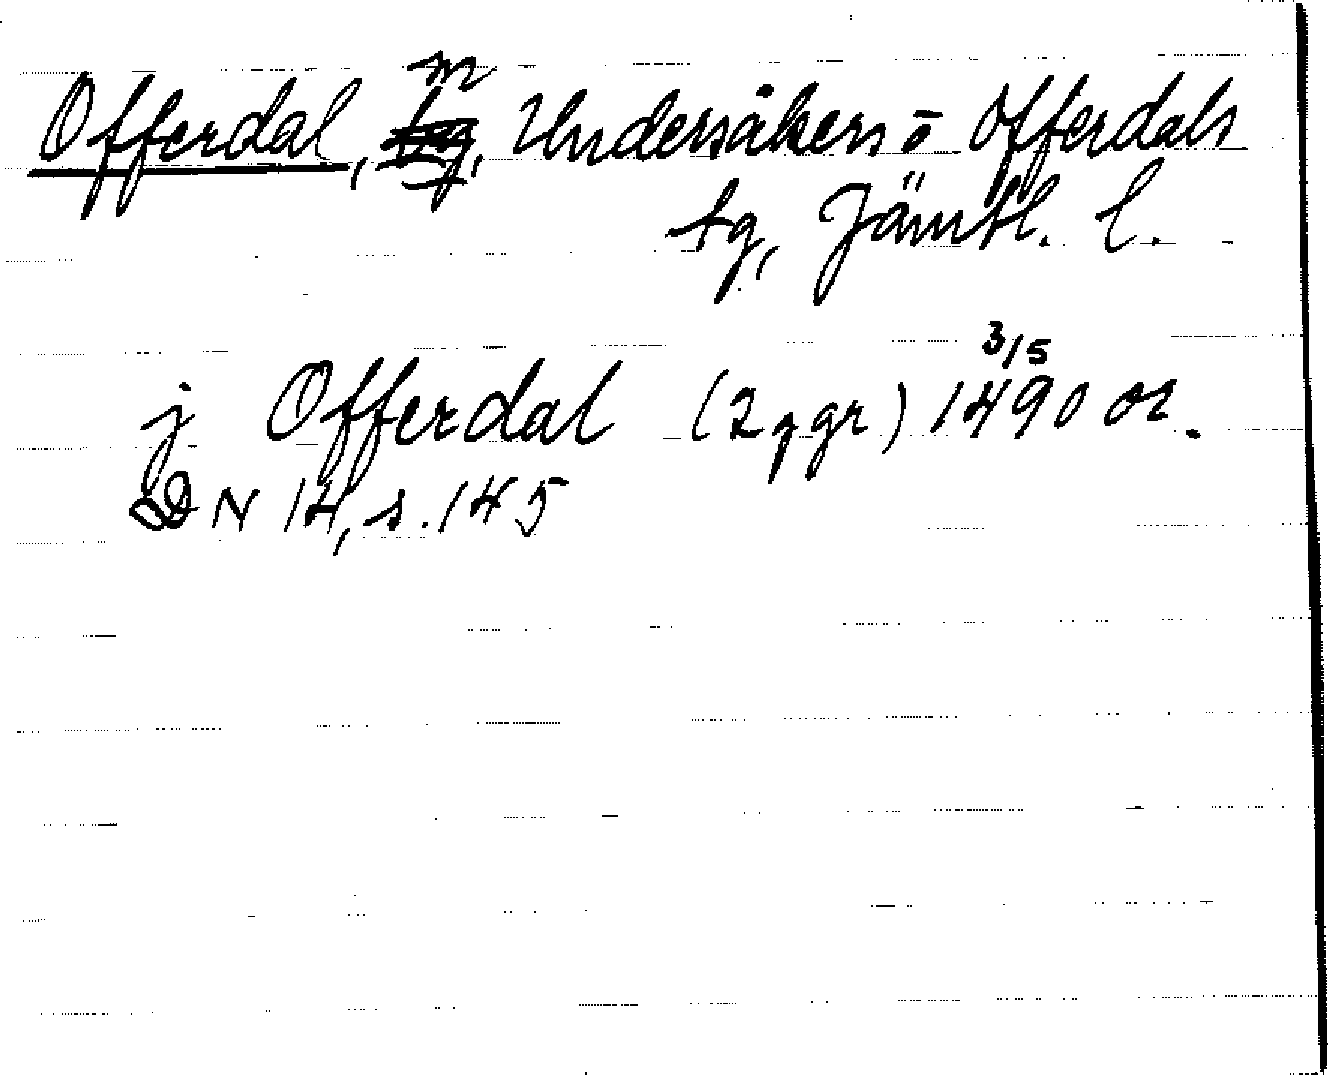 Offerdal, sn, Undersåkers o Offerdals
tg, Jämtl. l.
j Offerdal (2 ggr) 3/5 1490 or.
DN 14, s. 145